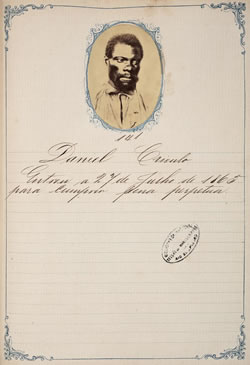 181
Daniel Crioulo
Entrou a 27 de Julho de 1865
para cumprir pena perpetua